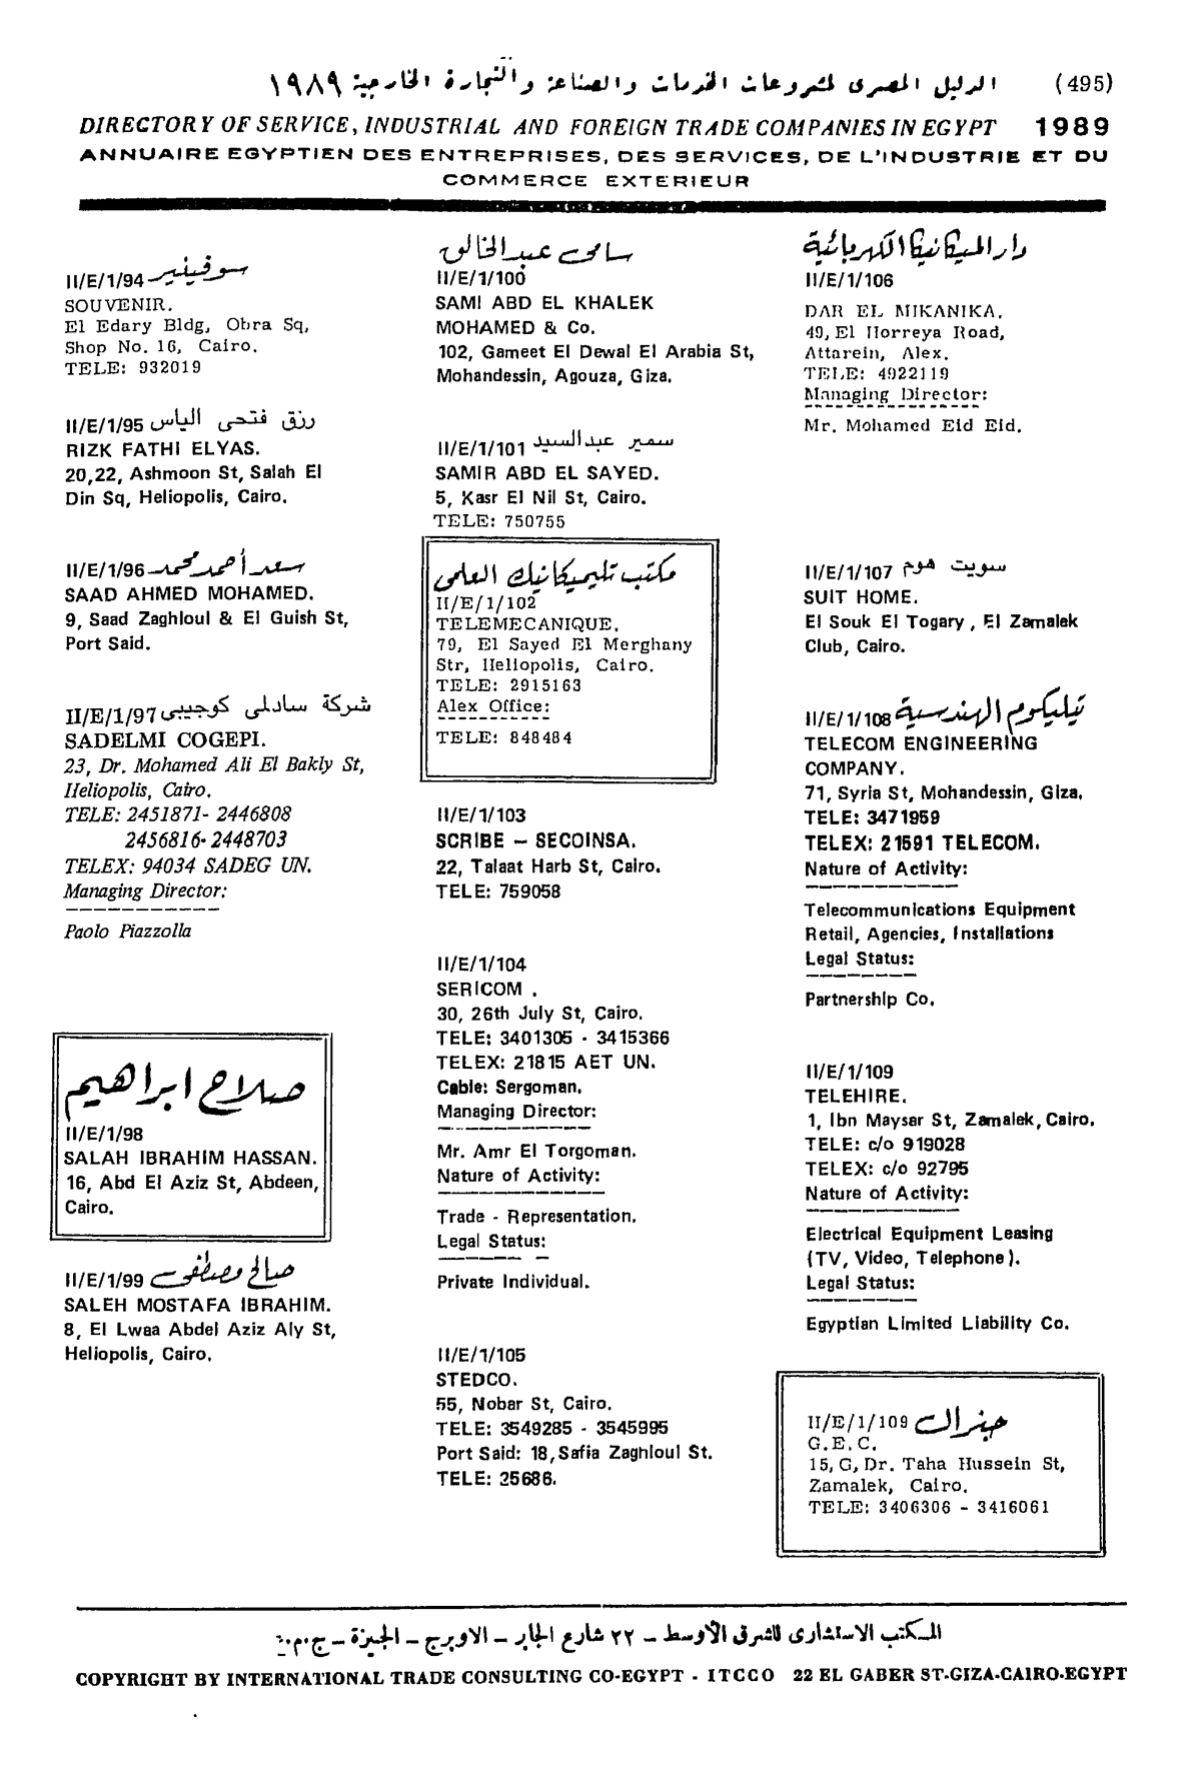 الدليل المصرى لمشروعات الخدمات والصناعة والتجارة الخارجية ١٩٨٩ (495)
DIRECTORY OF SERVICE, INDUSTRIAL AND FOREIGN TRADE COMPANIES IN EGYPT 1989
ANNUAIRE EGYPTIEN DES ENTREPRISES, DES SERVICES, DE L'INDUSTRIE ET DU
COMMERCE EXTERIEUR
II/E/1/94 سوفينير
SOUVENIR.
El Edary Bldg, Obra Sq,
Shop No. 16, Cairo.
TELE: 932019
II/E/1/95 رزق فتحى الياس
RIZK FATHI ELYAS.
20,22, Ashmoon St, Salah El
Din Sq, Heliopolis, Cairo.
II/E/1/96 سعد أحمد محمد
SAAD AHMED MOHAMED.
9, Saad Zaghloul & El Guish St,
Port Said.
II/E/1/97 شركة سادلمى كوجيبى
SADELMI COGEPI.
23, Dr. Mohamed Ali El Bakly St,
Heliopolis, Cairo.
TELE: 2451871- 2446808
2456816- 2448703
TELEX: 94034 SADEG UN.
Managing Director:
Paolo Piazzolla
صلاح ابراهيم
II/E/1/98
SALAH IBRAHIM HASSAN.
16, Abd El Aziz St, Abdeen,
Cairo.
II/E/1/99 صالح مصطفى
SALEH MOSTAFA IBRAHIM.
8, El Lwaa Abdel Aziz Aly St,
Heliopolis, Cairo.
سامى عبد الخالق
II/E/1/100
SAMI ABD EL KHALEK
MOHAMED & Co.
102, Gameet El Dewal El Arabia St,
Mohandessin, Agouza, Giza.
II/E/1/101 سمير عبد السيد
SAMIR ABD EL SAYED.
5, Kasr El Nil St, Cairo.
TELE: 750755
مكتب تليميكانيك العلمى
II/E/1/102
TELEMECANIQUE.
79, El Sayed El Merghany
Str, Heliopolis, Cairo.
TELE: 2915163
Alex Office:
TELE: 848484
II/E/1/103
SCRIBE – SECOINSA.
22, Talaat Harb St, Cairo.
TELE: 759058
II/E/1/104
SERICOM .
30, 26th July St, Cairo.
TELE: 3401305 - 3415366
TELEX: 21815 AET UN.
Cable: Sergoman.
Managing Director:
Mr. Amr El Torgoman.
Nature of Activity:
Trade - Representation.
Legal Status:
Private Individual.
II/E/1/105
STEDCO.
55, Nobar St, Cairo.
TELE: 3549285 - 3545995
Port Said: 18, Safia Zaghloul St.
TELE: 25686.
دار الميكانيكا الكهربائية
II/E/1/106
DAR EL MIKANIKA.
49, El Horreya Road,
Attarein, Alex.
TELE: 4922119
Managing Director:
Mr. Mohamed Eid Eid.
II/E/1/107 سويت هوم
SUIT HOME.
El Souk El Togary , El Zamalek
Club, Cairo.
II/E/1/108 تيليكوم الهندسية
TELECOM ENGINEERING
COMPANY.
71, Syria St, Mohandessin, Giza.
TELE: 3471959
TELEX: 21591 TELECOM.
Nature of Activity:
Telecommunications Equipment
Retail, Agencies, Installations
Legal Status:
Partnership Co.
II/E/1/109
TELEHIRE.
1, Ibn Maysar St, Zamalek, Cairo.
TELE: c/o 919028
TELEX: c/o 92795
Nature of Activity:
Electrical Equipment Leasing
(TV, Video, Telephone).
Legal Status:
Egyptian Limited Liability Co.
II/E/1/109 جنرال
G.E.C.
15, G, Dr. Taha Hussein St,
Zamalek, Cairo.
TELE: 3406306 - 3416061
المكتب الاستشارى للشرق الأوسط - ٢٢ شارع الجابر - الاوبرج - الجيزة - ج.م.ع
COPYRIGHT BY INTERNATIONAL TRADE CONSULTING CO-EGYPT - ITCCO 22 EL GABER ST-GIZA-CAIRO-EGYPT